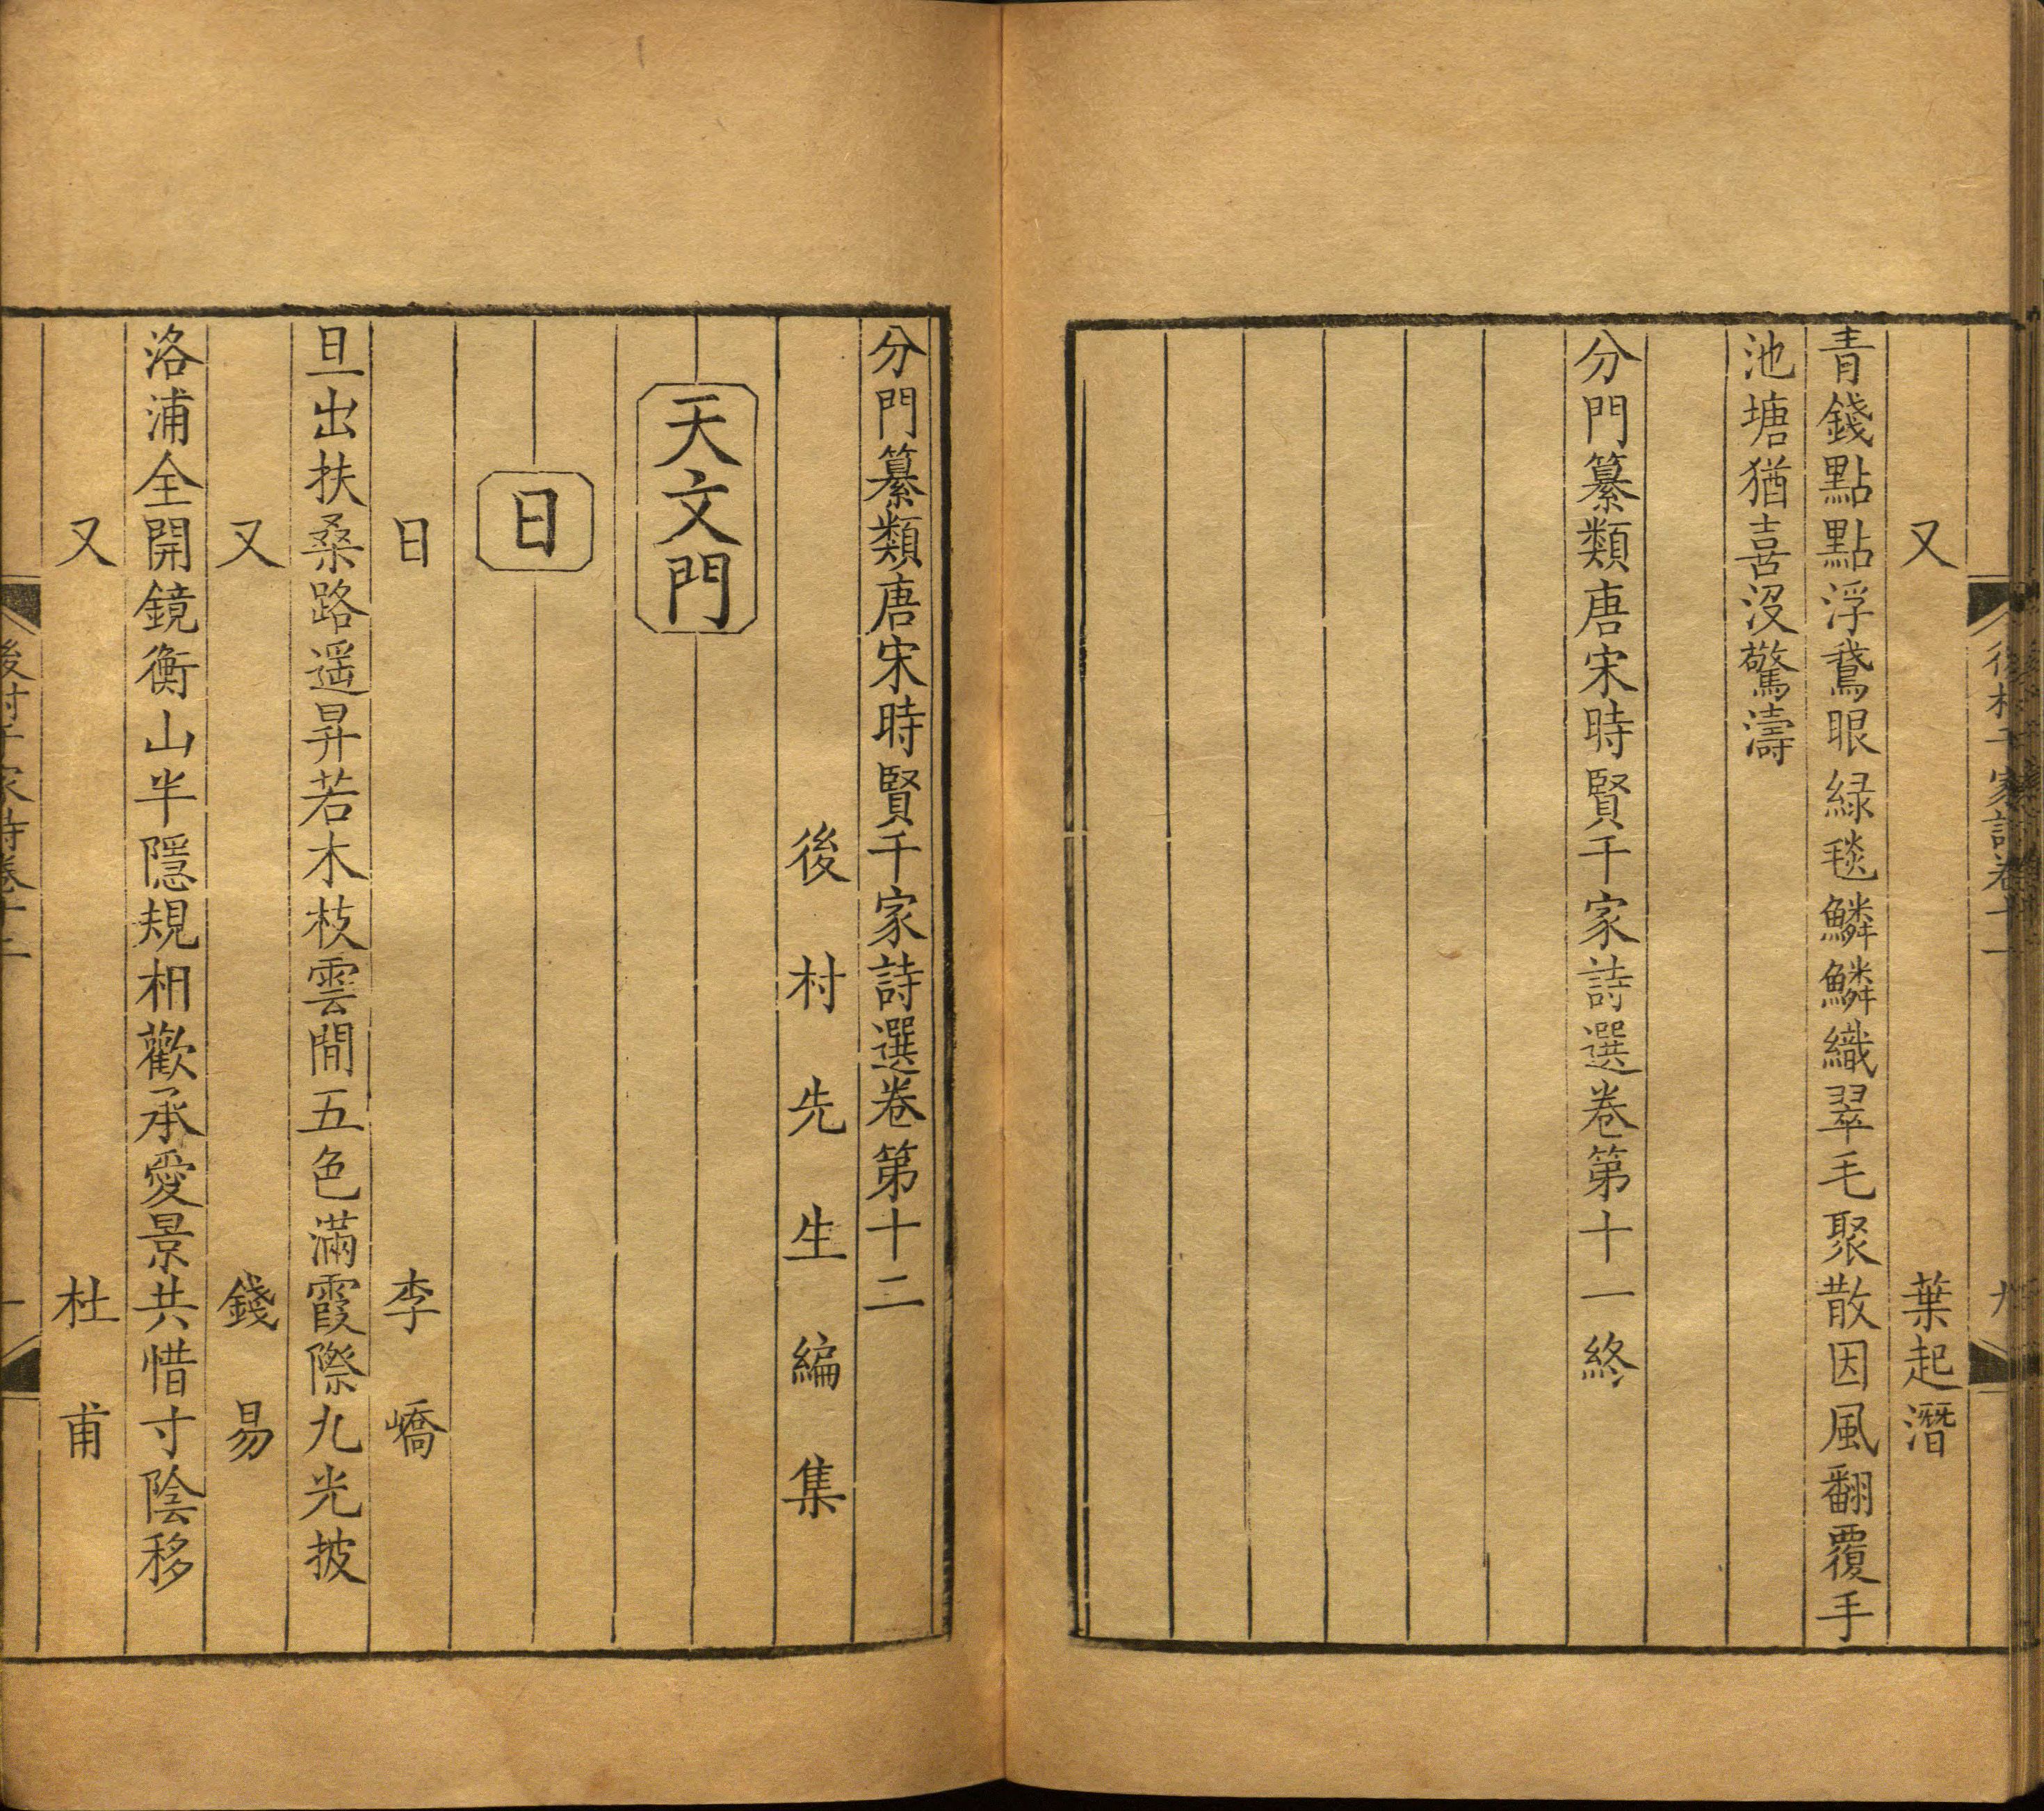 又 葉起潛
青錢點點浮鵞眼綠毯鱗鱗織翠毛聚散因風翻覆手
池塘猶喜沒驚濤
分門纂類唐宋時賢千家詩選卷第十一終
分門纂類唐宋時賢千家詩選卷第十二
後村先生編集
天文門
日
日 李嶠
旦出扶桑路遥昇若木枝雲間五色滿霞際九光披
又 錢易
洛浦全開鏡衡山半隱規相歡承愛景共惜寸陰移
又 杜甫
後村千家詩卷十二 一